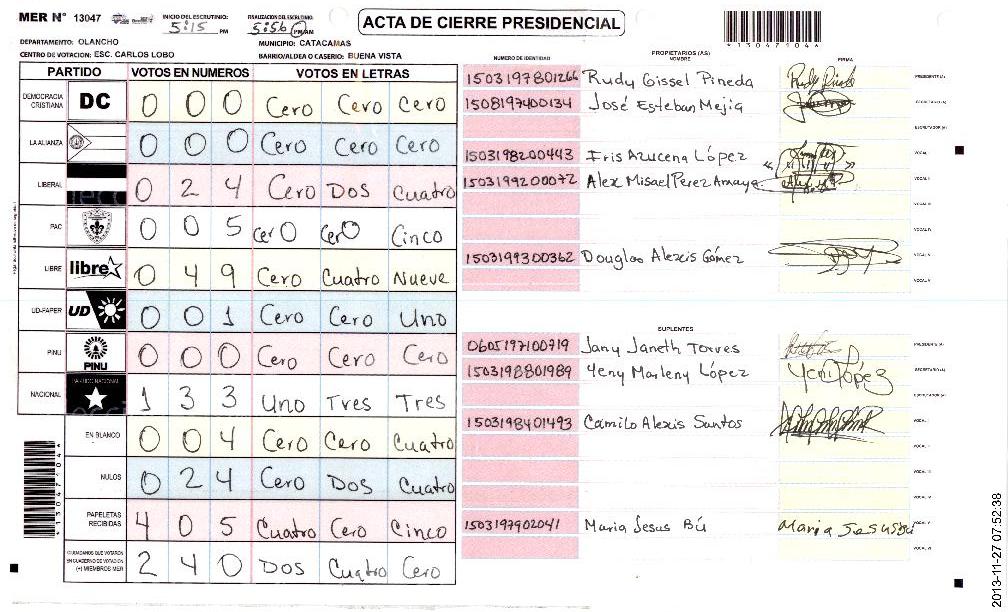 MER N° 13047 INICIO DEL ESCRUTINIO: 5:15 PM FINALIZACION DEL ESCRUTINIO: 5:56 PM AM
ACTA DE CIERRE PRESIDENCIAL
*13047104*
DEPARTAMENTO: OLANCHO MUNICIPIO: CATACAMAS
CENTRO DE VOTACION: ESC. CARLOS LOBO BARRIO/ALDEA O CASERIO: BUENA VISTA
PARTIDO VOTOS EN NUMEROS VOTOS EN LETRAS
DEMOCRACIA CRISTIANA DC 0 0 0 Cero Cero Cero
LA ALIANZA 0 0 0 Cero Cero Cero
LIBERAL 0 2 4 Cero Dos Cuatro
PAC 0 0 5 Cero Cero Cinco
LIBRE libre 0 4 9 Cero Cuatro Nueve
UD-FAPER UD 0 0 1 Cero Cero Uno
PINU PINU 0 0 0 Cero Cero Cero
NACIONAL PARTIDO NACIONAL 1 3 3 Uno Tres Tres
EN BLANCO 0 0 4 Cero Cero Cuatro
NULOS 0 2 4 Cero Dos Cuatro
PAPELETAS RECIBIDAS 4 0 5 Cuatro Cero Cinco
CIUDADANOS QUE VOTARON EN CUADERNO DE VOTACION (+) MIEMBROS MER 2 4 0 Dos Cuatro Cero
*13047104*
PROPIETARIOS (AS)
NUMERO DE IDENTIDAD NOMBRE FIRMA
1503197801266 Rudy Gissel Pineda PRESIDENTE (A)
1508197400134 José Esteban Mejia SECRETARIO (A)
ESCRUTADOR (A)
1503198200443 Iris Azucena López VOCAL I
1503199200072 Alex Misael Perez Amaya VOCAL II
VOCAL III
VOCAL IV
1503199300362 Douglas Alexis Gómez VOCAL V
VOCAL VI
SUPLENTES
0605197100719 Jany Janeth Torres PRESIDENTE (A)
1503198801989 Yeny Marleny López Yeni López SECRETARIO (A)
ESCRUTADOR (A)
1503198401493 Camilo Alexis Santos VOCAL I
VOCAL II
VOCAL III
VOCAL IV
1503197902041 Maria Jesus Bú Maria Jesus Bú VOCAL V
VOCAL VI
2013-11-27 07:52:38